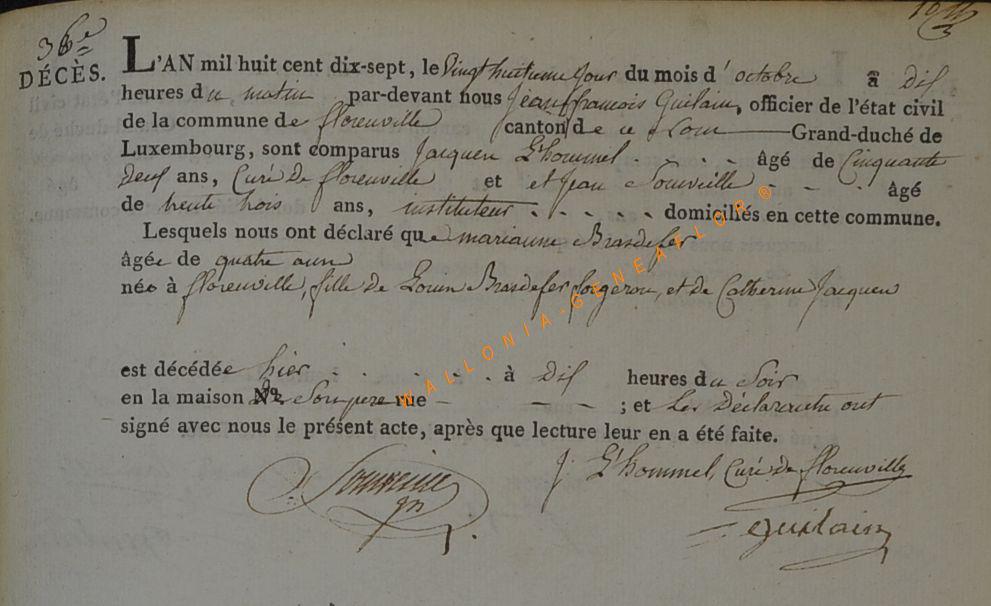 36e
DÉCÈS.
L'AN mil huit cent dix-sept, le Vingt huitieme jour du mois d'octobre à Dix
heures du matin par-devant nous Jean françois Guilain, officier de l'état civil
de la commune de florenville canton de ce Nom Grand-duché de
Luxembourg, sont comparus Jacques L'hommel . . . âgé de Cinquante
deux ans, Curé de florenville et et Jean Souveille . . . âgé
de trente trois ans, instituteur . . . . . domiciliés en cette commune.
Lesquels nous ont déclaré que marianne Brasdefer
âgée de quatre ans
née à florenville, fille de Louis Brasdefer forgeron, et de Catherine Jacques
est décédée hier . . . . . à Dix heures du Soir
en la maison de Son pere rue ; et Les Déclarants ont
signé avec nous le présent acte, après que lecture leur en a été faite.
J. L'hommel, Curé de florenville
Guilain
WALLONIA-GENEAFLOR®